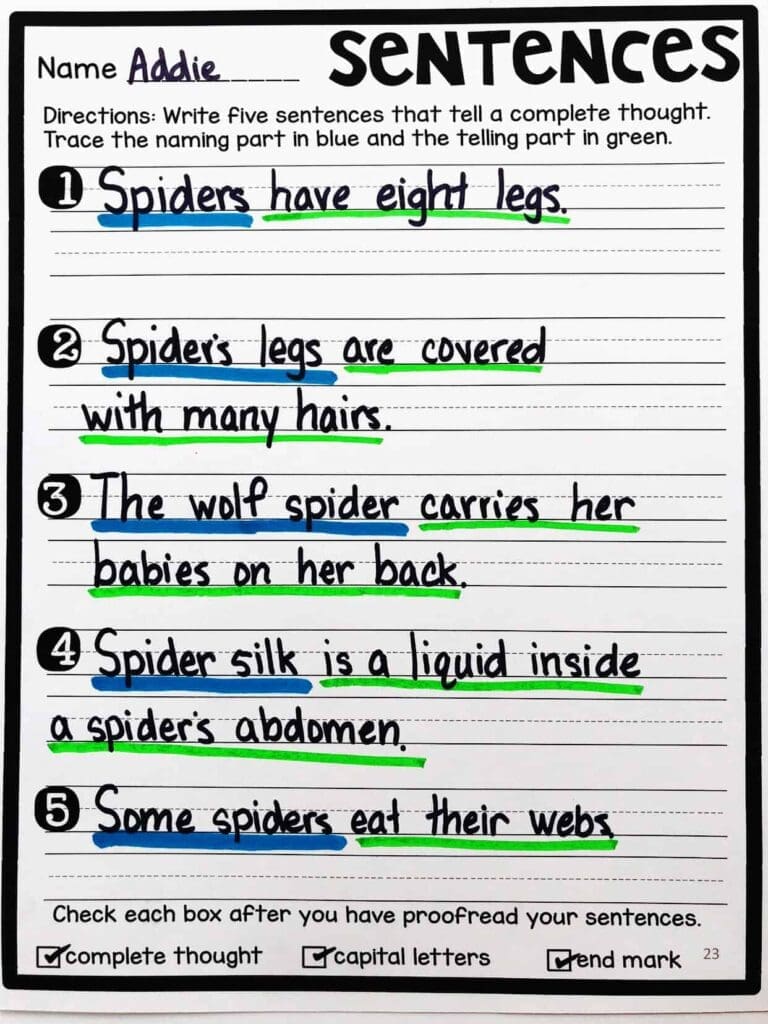 Name Addie
SENTENCES
Directions: Write five sentences that tell a complete thought.
Trace the naming part in blue and the telling part in green.
1 Spiders have eight legs.
2 Spider's legs are covered
with many hairs.
3 The wolf spider carries her
babies on her back.
4 Spider silk is a liquid inside
a spider's abdomen.
5 Some spiders eat their webs.
Check each box after you have proofread your sentences.
complete thought capital letters end mark 23